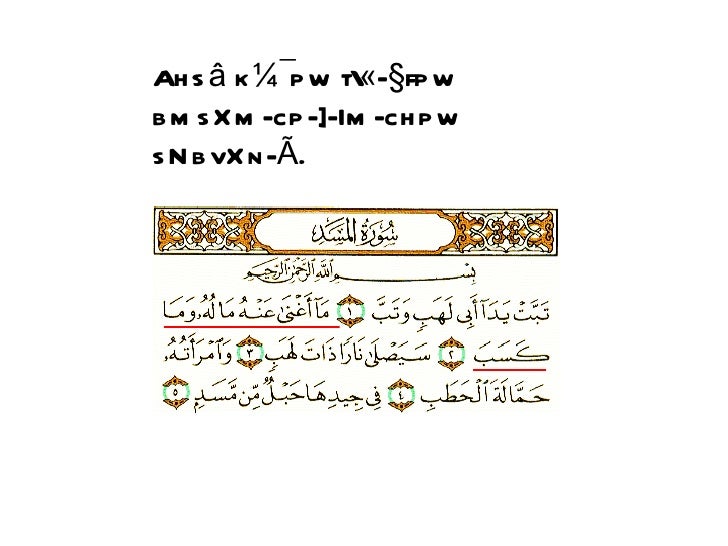 Ahsâ k¼¯pw t\«-§fpw
bmsXm-cp-]-Im-chpw
sNbvXn-Ã.
سُورَةُ المَسَدِ
بِسْمِ ٱللَّهِ ٱلرَّحْمَٰنِ ٱلرَّحِيمِ
تَبَّتْ يَدَآ أَبِي لَهَبٍ وَتَبَّ ١ مَآ أَغْنَىٰ عَنْهُ مَالُهُۥ وَمَا
كَسَبَ ٢ سَيَصْلَىٰ نَارًا ذَاتَ لَهَبٍ ٣ وَٱمْرَأَتُهُۥ
حَمَّالَةَ ٱلْحَطَبِ ٤ فِي جِيدِهَا حَبْلٌ مِّن مَّسَدٍ ٥